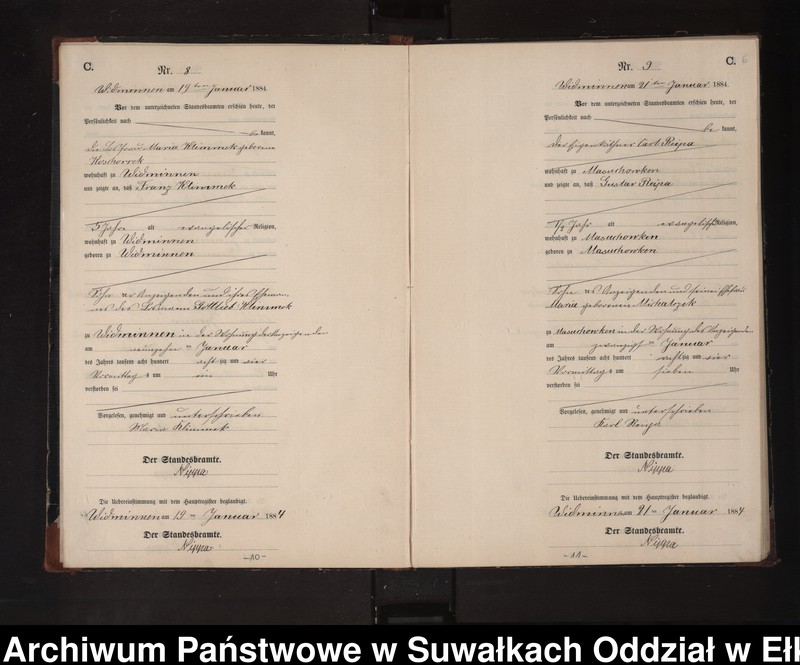 C.
Nr. 8
Widminnen am 19ten Januar 1884.
Vor dem unterzeichneten Standesbeamten erschien heute, der
Persönlichkeit nach
be kannt,
die Losfrau Maria Klimmek geborene
Koschorrek
wohnhaft zu Widminnen
und zeigte an, daß Franz Klimmek
5 Jahre alt evangelischer Religion,
wohnhaft zu Widminnen
geboren zu Widminnen
Sohn der Anzeigenden und ihres Eheman
nes des Losmann Gottlieb Klimmek
zu Widminnen in der Wohnung der Anzeigenden
am neunzehn ten Januar
des Jahres tausend acht hundert acht zig und vier
Vormittag s um Uhr
verstorben sei
Vorgelesen, genehmigt und unterschrieben
Maria Klimmek
Der Standesbeamte.
Nippa
Die Uebereinstimmung mit dem Hauptregister beglaubigt.
Widminnen am 19ten Januar 1884
Der Standesbeamte.
Nippa
-10-
Nr. 9
C. 6
Widminnen am 21ten Januar 1884.
Vor dem unterzeichneten Standesbeamten erschien heute, der
Persönlichkeit nach
be kannt,
der Eigenkäthner Carl Reipa
wohnhaft zu Masuchowken
und zeigte an, daß Gustav Reipa
1/2 Jahr alt evangelisch Religion,
wohnhaft zu Masuchowken
geboren zu Masuchowken
Sohn des Anzeigenden und seiner Ehefrau
Maria geborenen Michalzik
zu Masuchowken in der Wohnung des Anzeigenden
am zwanzigst en Januar
des Jahres tausend acht hundert acht zig und vier
Vormittag s um sieben Uhr
verstorben sei
Vorgelesen, genehmigt und unterschrieben
Karl
Der Standesbeamte.
Nippa
Die Uebereinstimmung mit dem Hauptregister beglaubigt.
Widminnen am 21ten Januar 1884
Der Standesbeamte.
Nippa
-11-
Archiwum Państwowe w Suwałkach Oddział w Eł